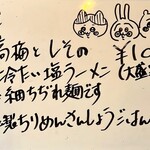 高梅としその
¥10
冷たい塩ラーメン
(大盛
細ちぢれ麺です
製ちりめんさんしょうごはん